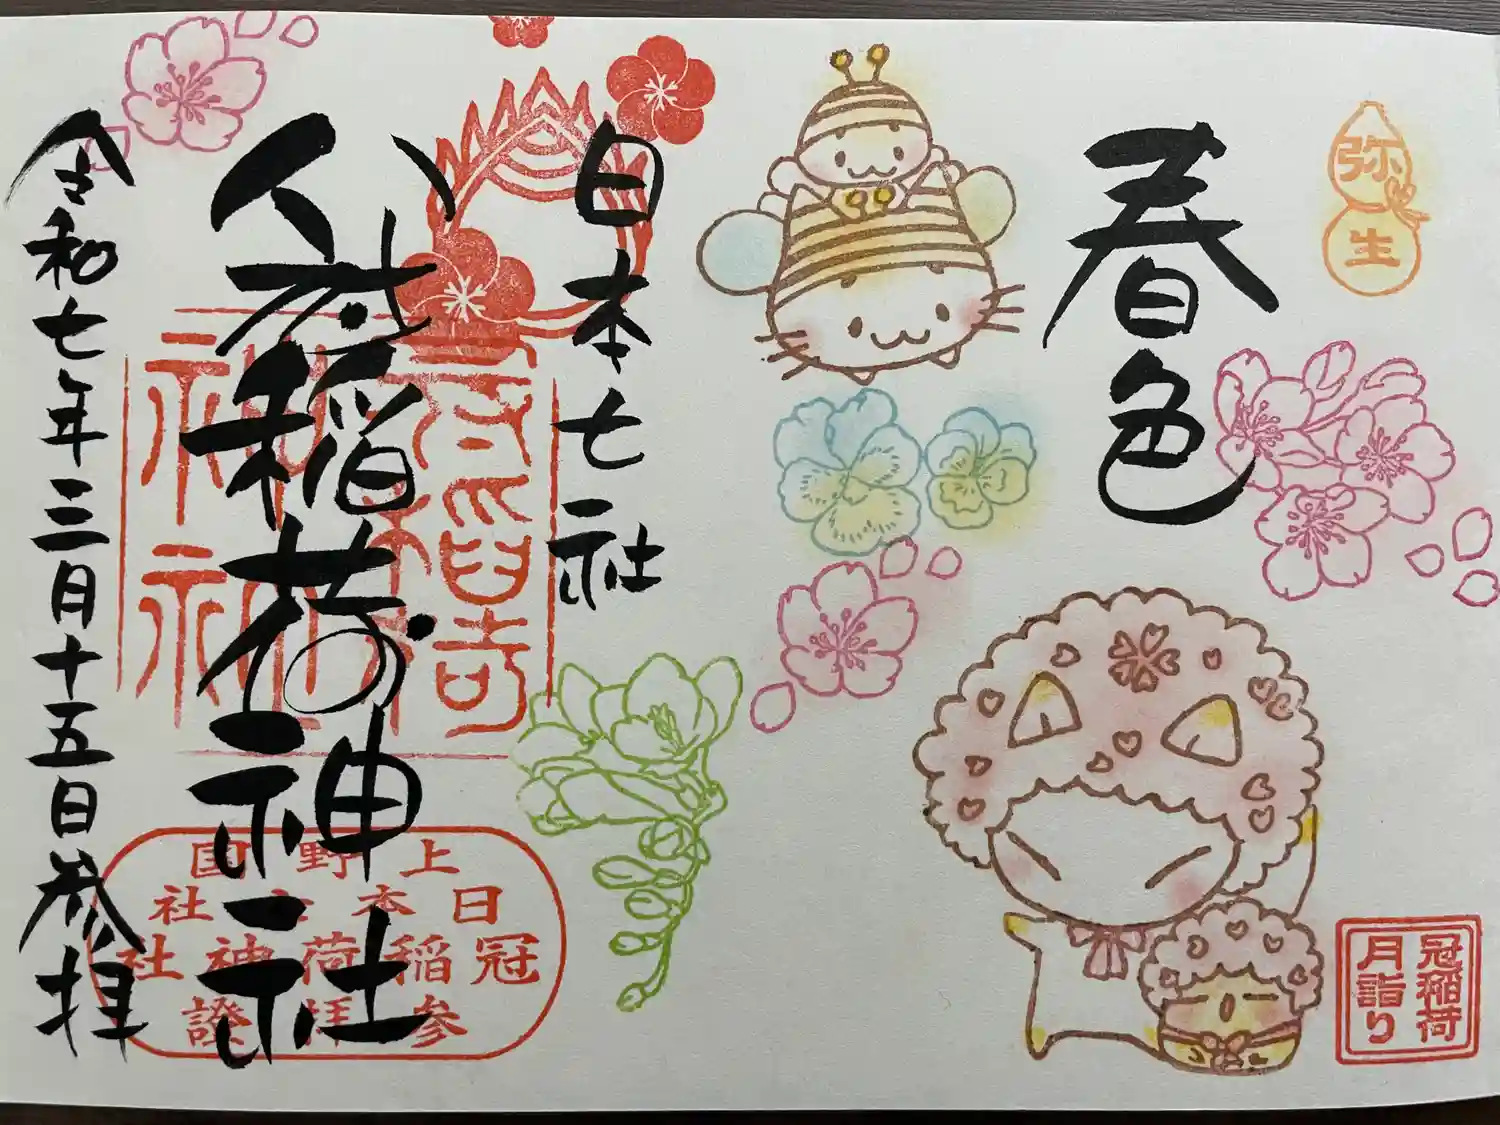 弥生
春色
日本七社
冠稲荷神社
令和七年三月十五日参拝
上野国
日本七社
冠稲荷神社
參拝證
冠稲荷
月詣り